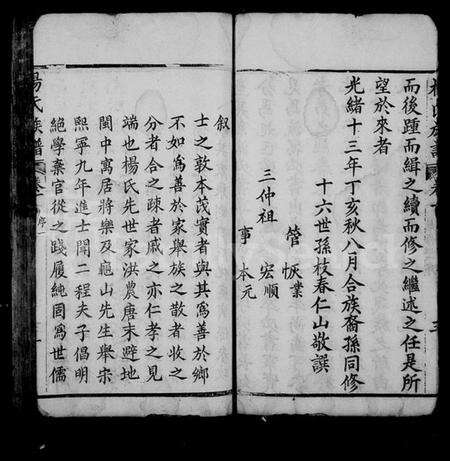 而後踵而緝之續而修之繼述之任是所
望於來者
光緒十三年丁亥秋八月合族裔孫同修
十六世孫枝春仁山敬譔
管 恹業
三仲祖 宏順
事 本元
楊氏族譜
叙
士之敦本茂實者與其為善於鄉
不如為善於家舉族之散者收之
分者合之疎者戚之亦仁孝之見
端也楊氏先世家洪農唐末避地
閩中寓居將樂及龜山先生舉宋
熙寧九年進士聞二程夫子倡明
絶學棄官從之踐履純固為世儒